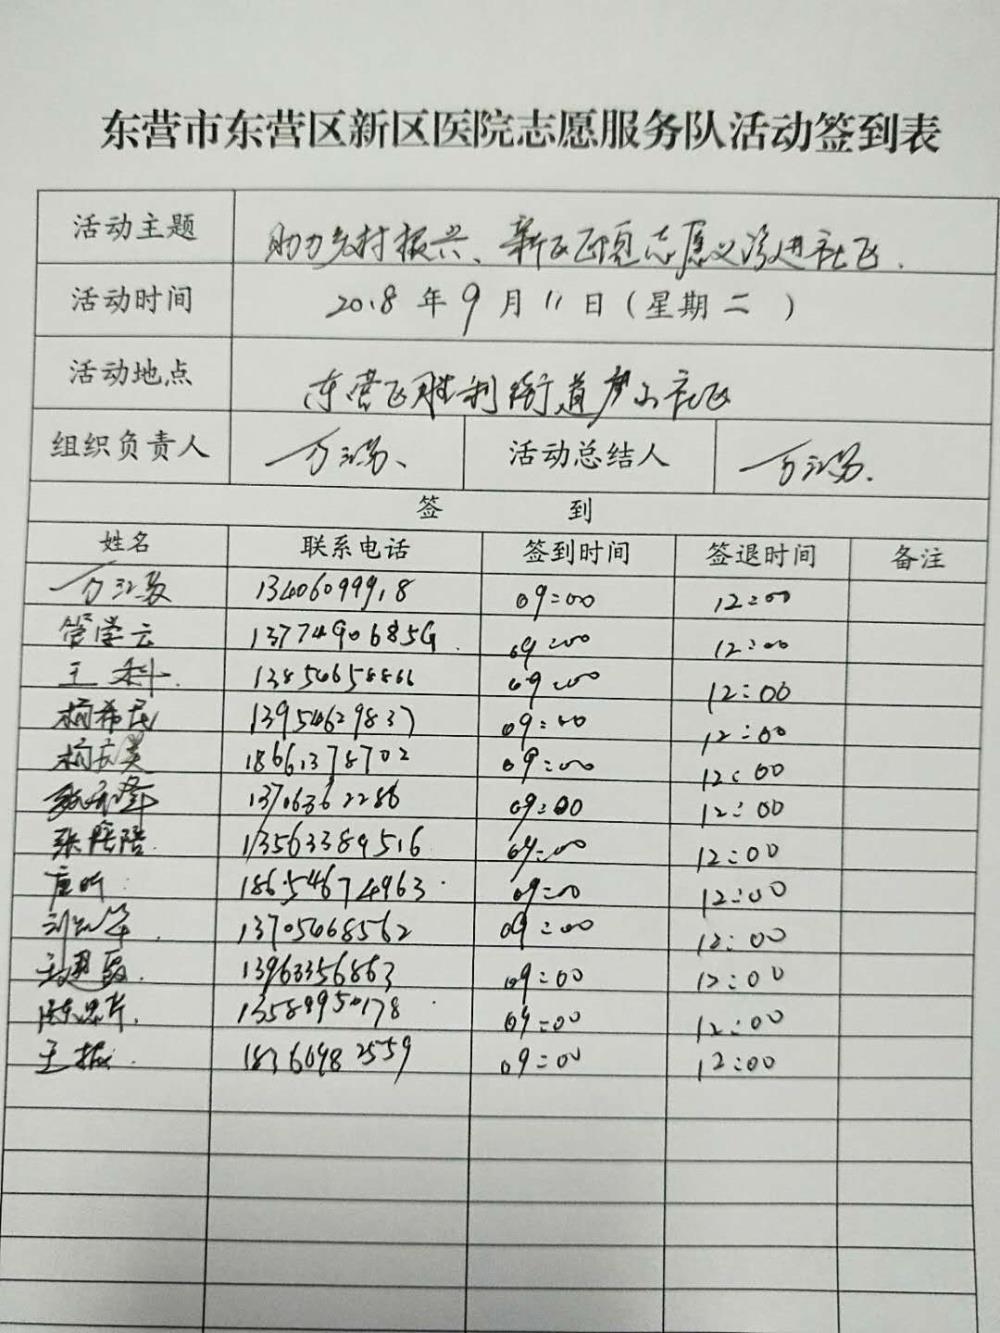 东营市东营区新区医院志愿服务队活动签到表
活动主题 助力乡村振兴、新区医院志愿义诊进社区.
活动时间 2018年9月11日(星期二)
活动地点 东营区胜利街道 社区
组织负责人 活动总结人
签到
姓名 联系电话 签到时间 签退时间 备注
13406099918 09:00 12:00
管学云 13774906856 09:00 12:00
王科. 13854658866 09:00 12:00
13954629837 09:00 12:00
18661378702 09:00 12:00
13706362286 09:00 12:00
13563389516 09:00 12:00
唐昕 18654674963 09:00 12:00
13705468562 09:00 12:00
13963356863 09:00 12:00
13589950178 09:00 12:00
王振 18366982559 09:00 12:00